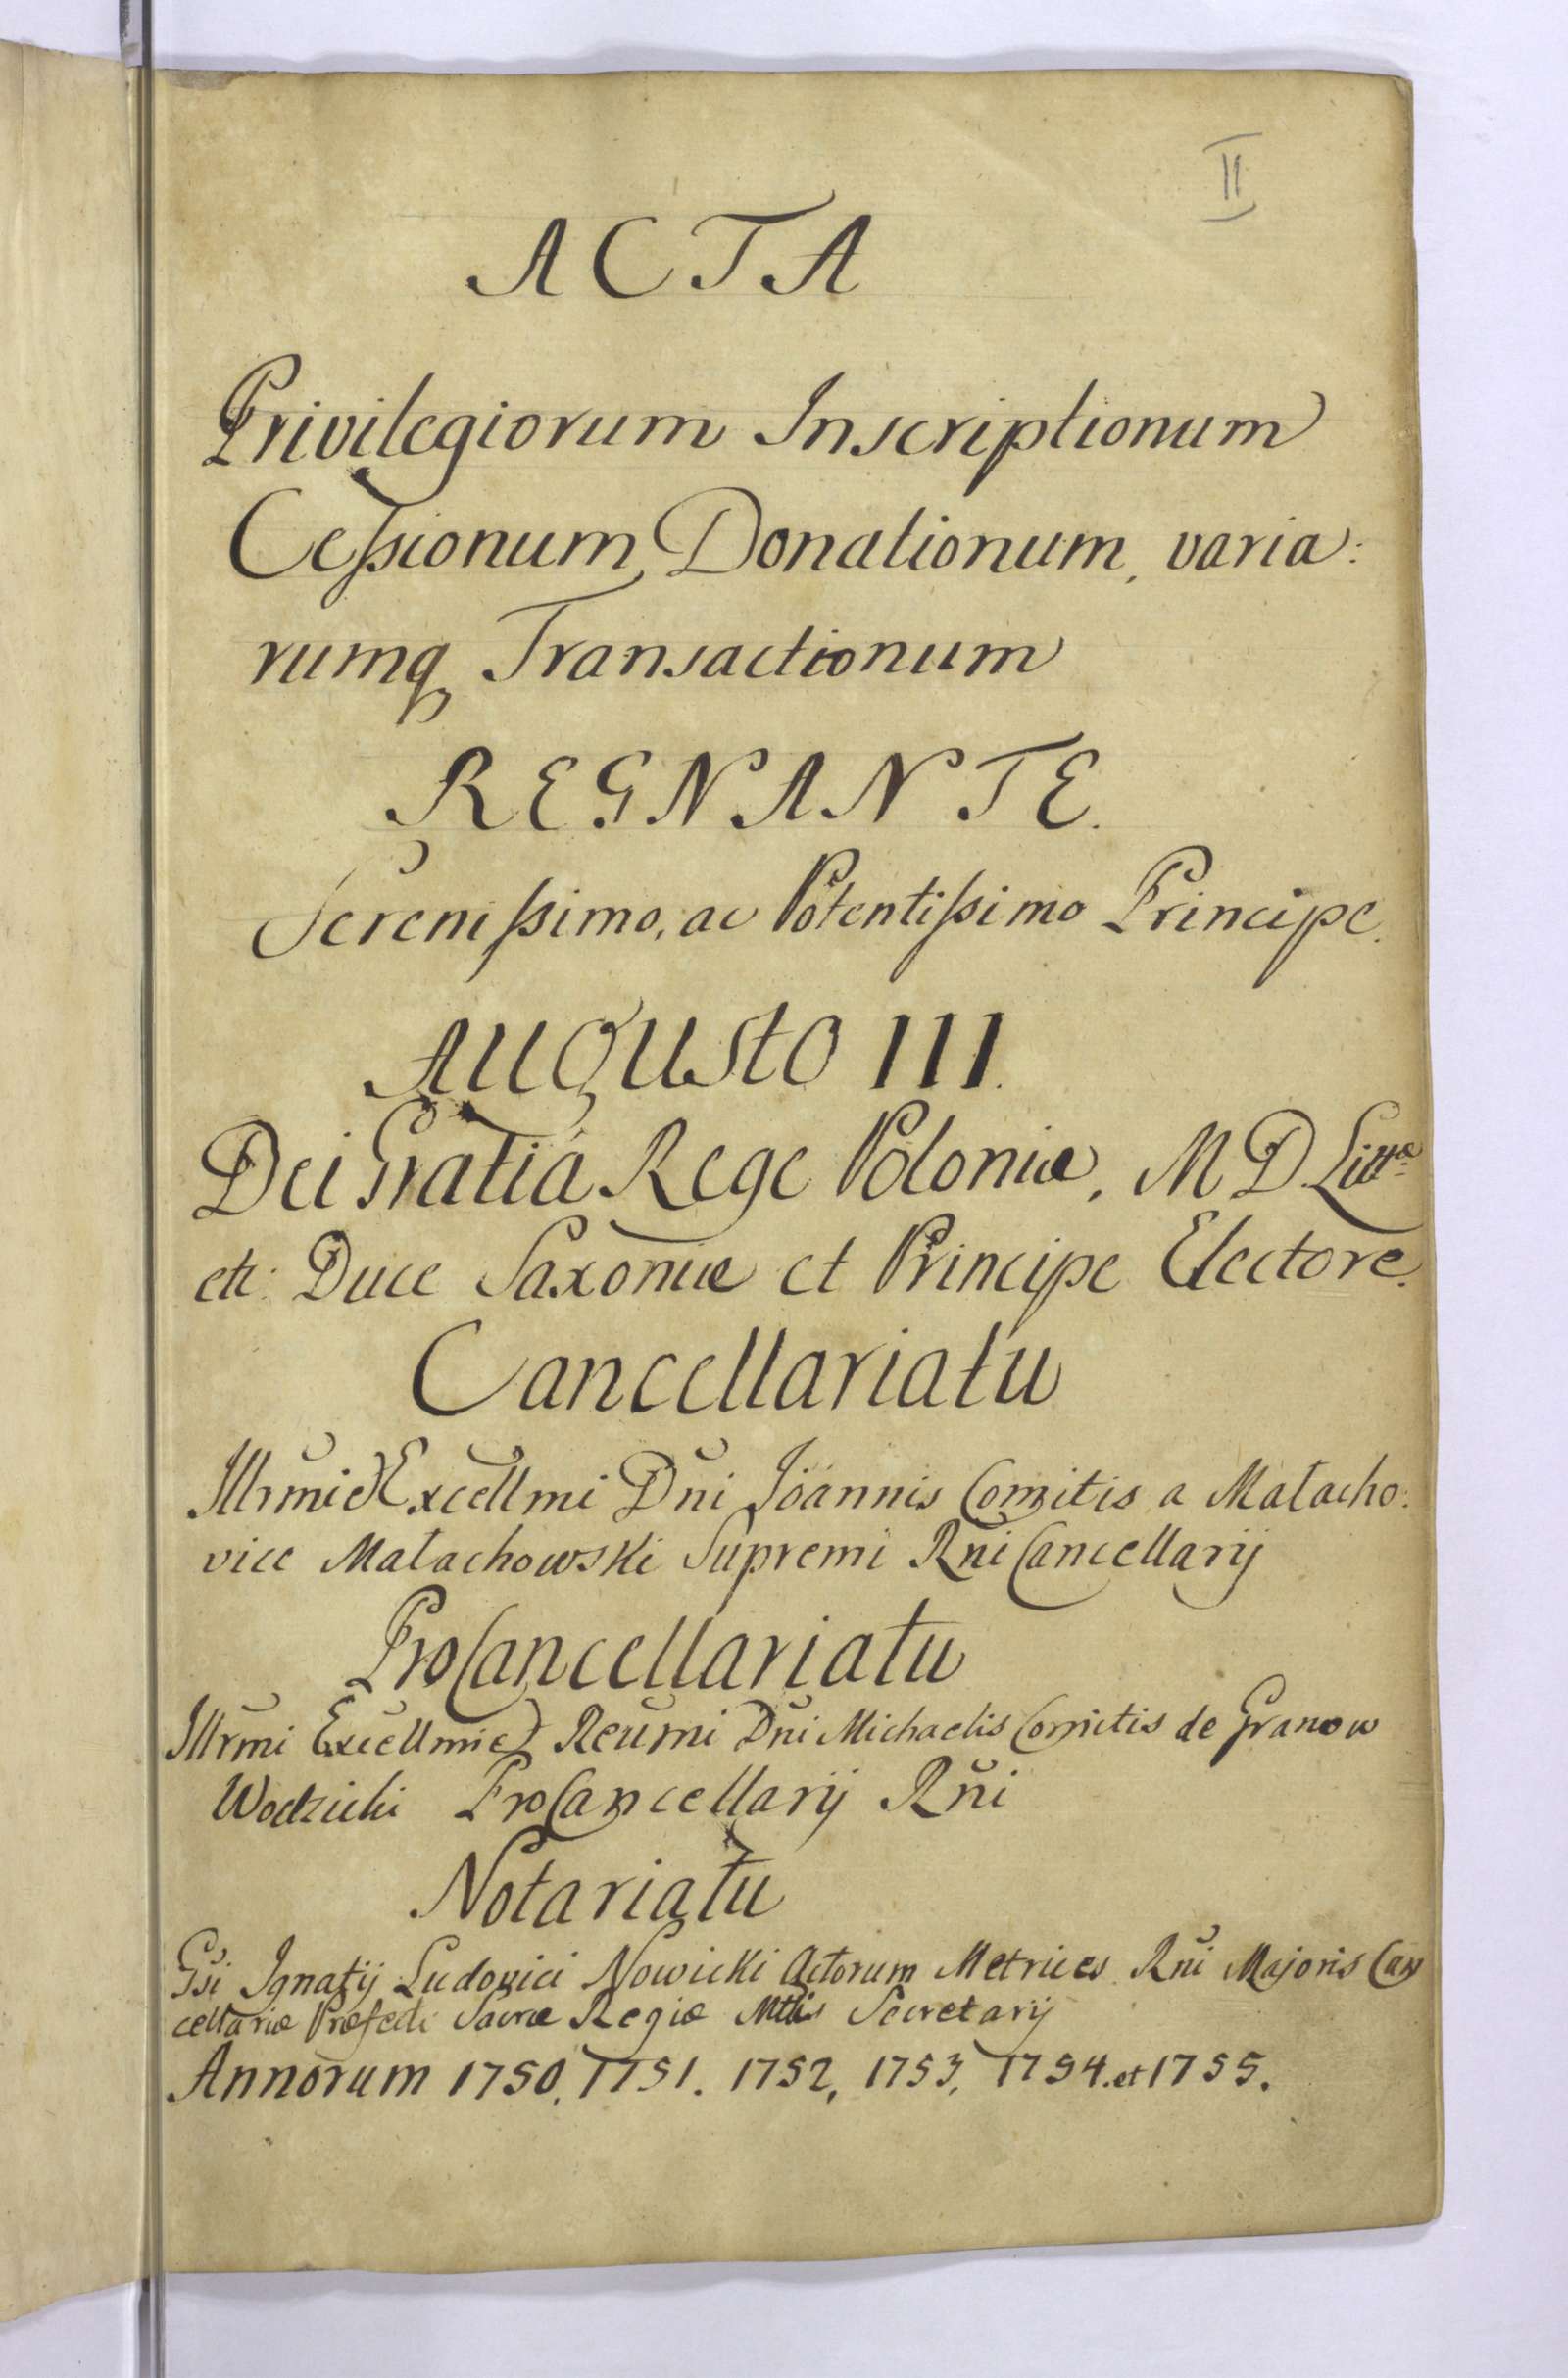 II
ACTA
Privilegiorum Inscriptionum
Cessionum, Donationum, varia:
rumq Transactionum
REGNANTE.
Serenissimo, ac Potentissimo Principe.
AUGUSTO III.
Dei Gratia Rege Poloniæ, M D. Littæ
etc: Duce Saxoniæ et Principe Electore.
Cancellariatu
Illrmi et Excellmi Dni Joannis Comitis a Matacho:
vice Matachowski Supremi Rni Cancellarij
ProCancellariatu
Illrmi Excellmi et Reumi Dni Michaelis Comitis de Granow
Wodzicki ProCancellarij Rni
Notariatu
Gsi Ignatij Ludovici Nowicki Actorum Metrices Rni Majoris Can
cellariæ Præfecti Sacræ Regiæ Mttis Secretarij
Annorum 1750, 1751. 1752, 1753, 1754. et 1755.